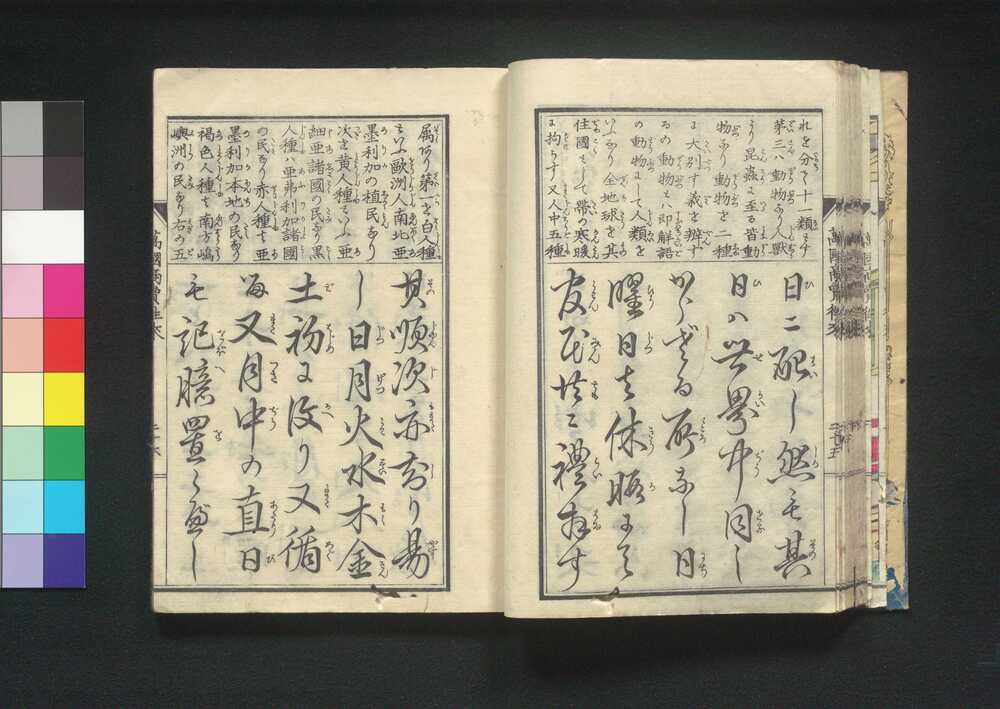 れを分て十一類とす
第三ハ動物なり人獣
より昆蟲に至る皆動
物なり動物を二種
に大別す義を辨す
るの動物ハ即解語
の動物にして人類を
いふなり全地球を其
住國として帯の寒暖
に拘らず又人中五種
日ニ配し然も其
日ハ世界中同し
からざる所なし日
曜日を休暇
官民共に禮拝す
属あり第一を白人種
といふ歐洲人南北亜
墨利加の植民なり
次を黄人種といふ亜
細亜諸國の民なり黒
人種ハ亜弗利加諸國
の民なり赤人種は亜
墨利加本地の民なり
褐色人種は南方嶋
嶼洲の民なり右の五
其順次亦有り易
し日月火水木金
土初に復り又循
る又月中の直日
も記臆置くべし